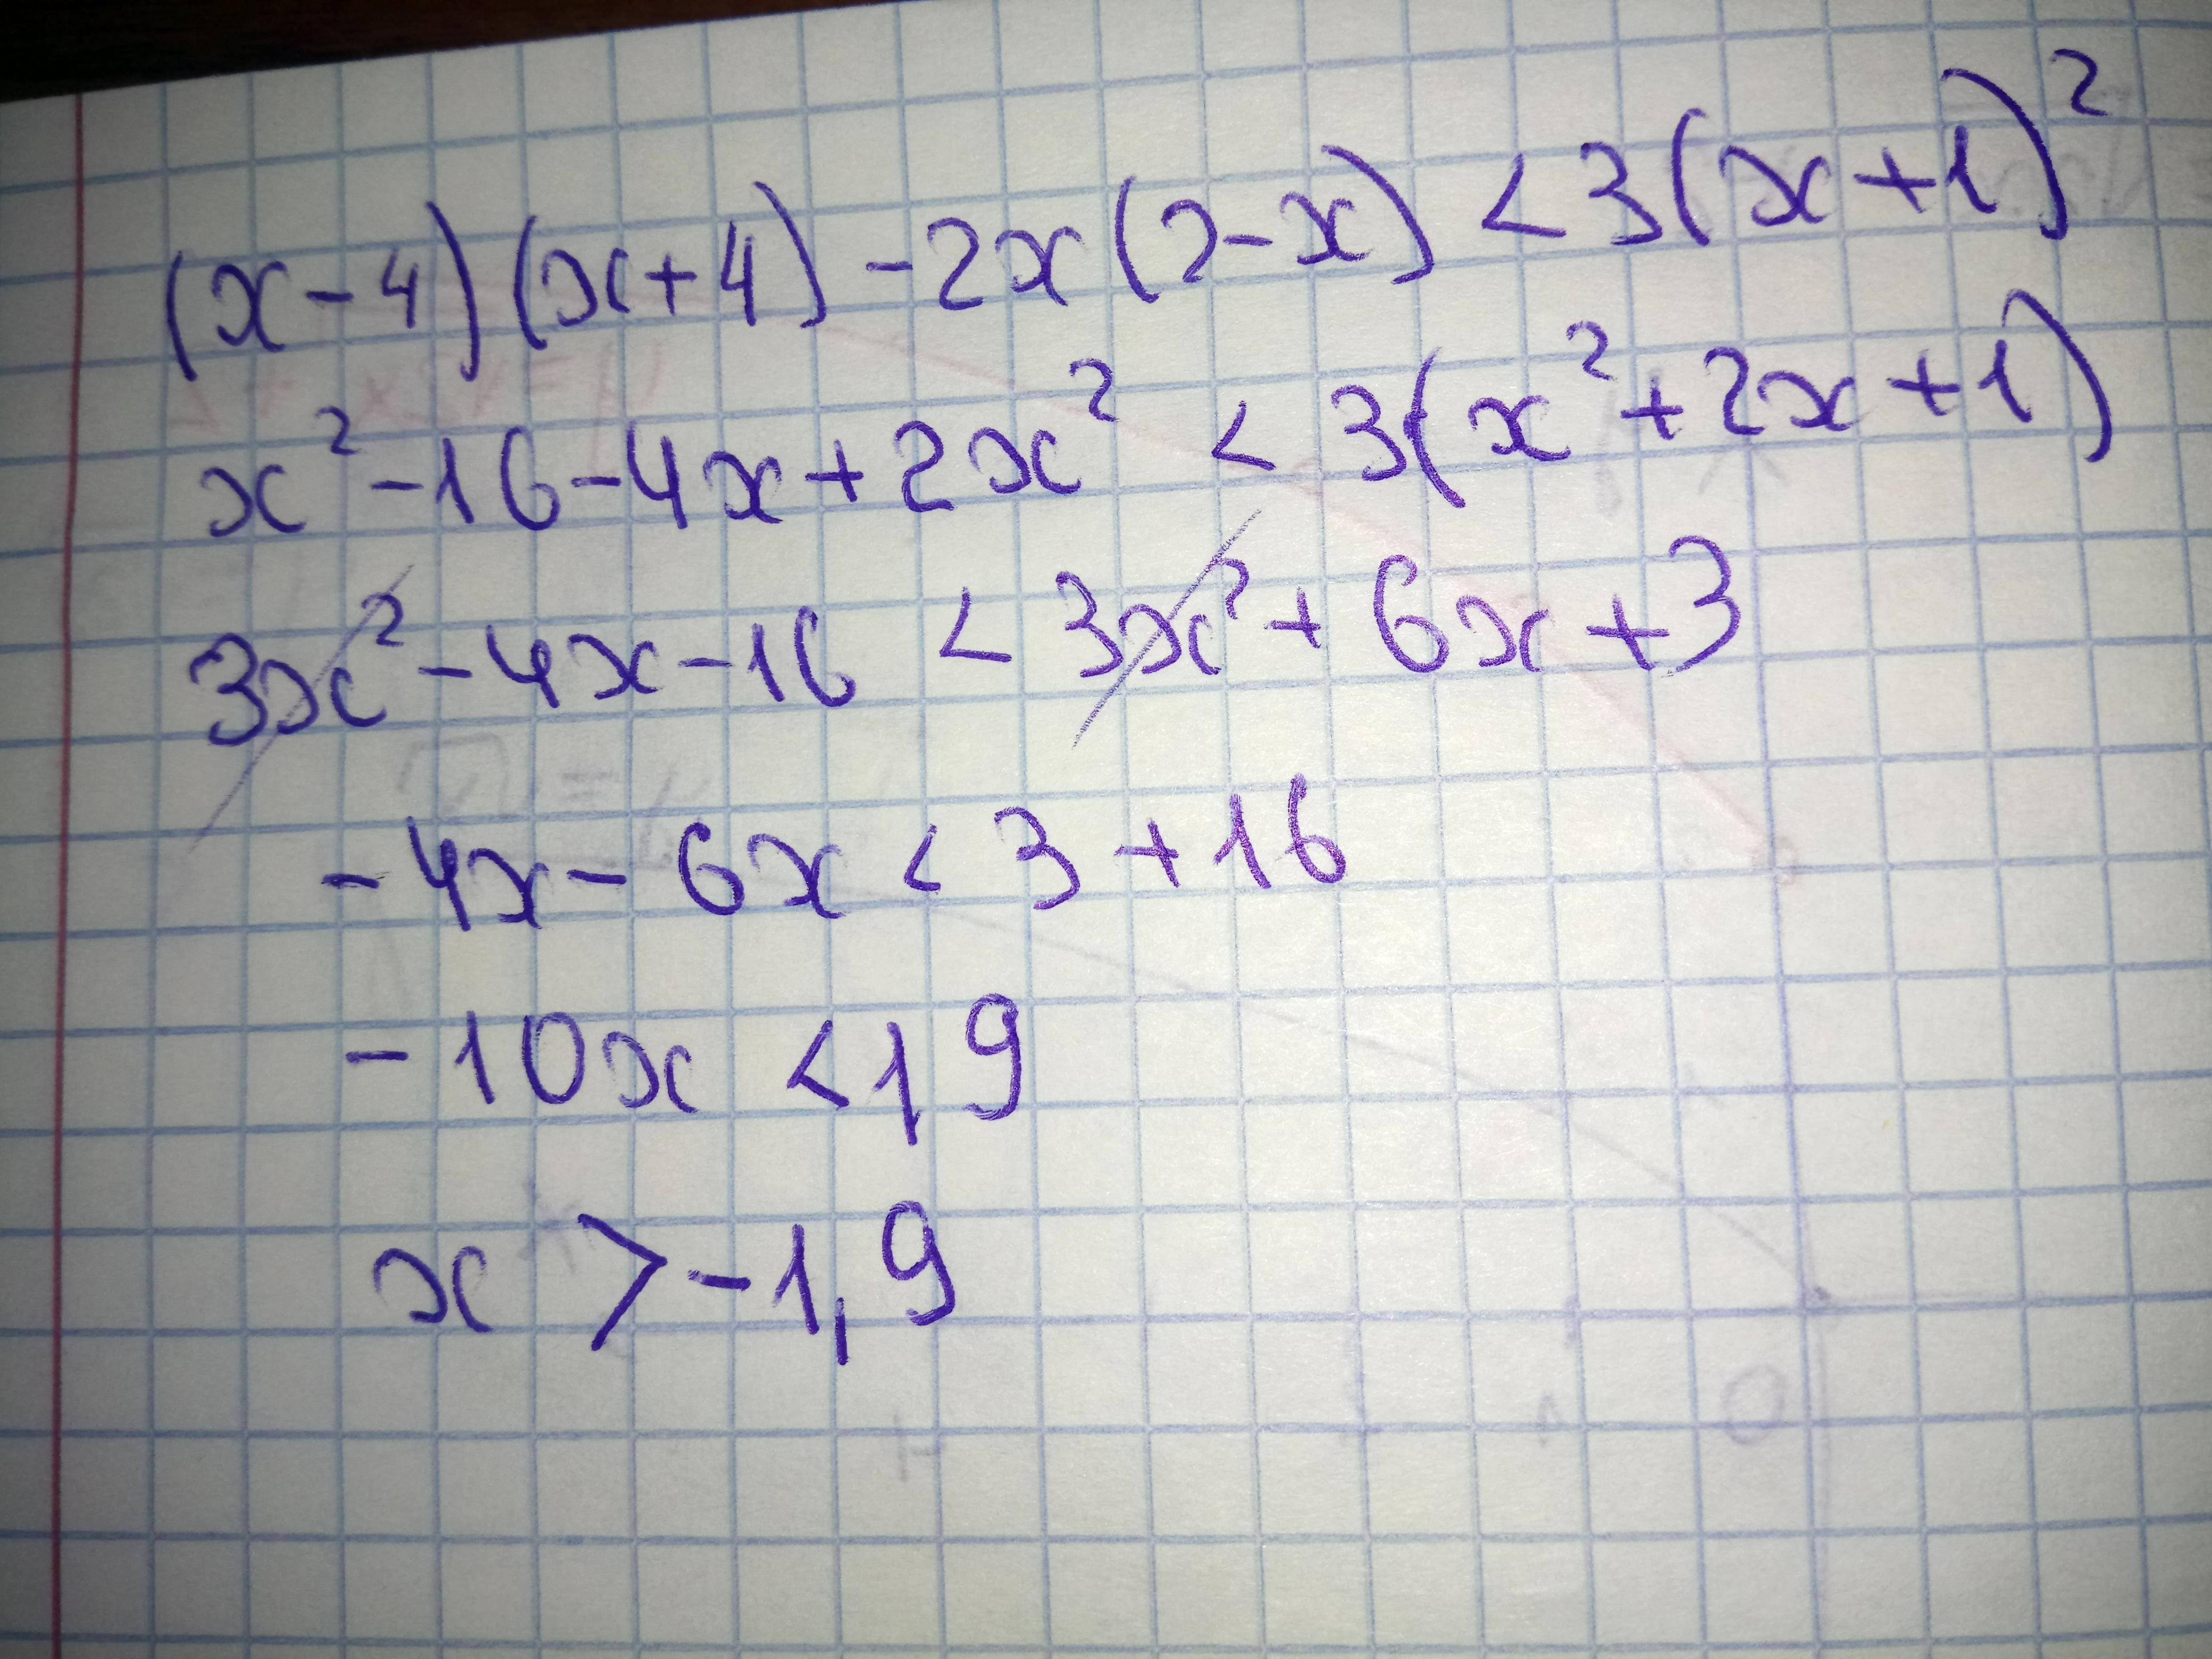 (x-4)(x+4)-2x(2-x)<3(x+1)²
x²-16-4x+2x²<3(x²+2x+1)
3x²-4x-16<3x²+6x+3
-4x-6x<3+16
-10x<19
x>-1,9